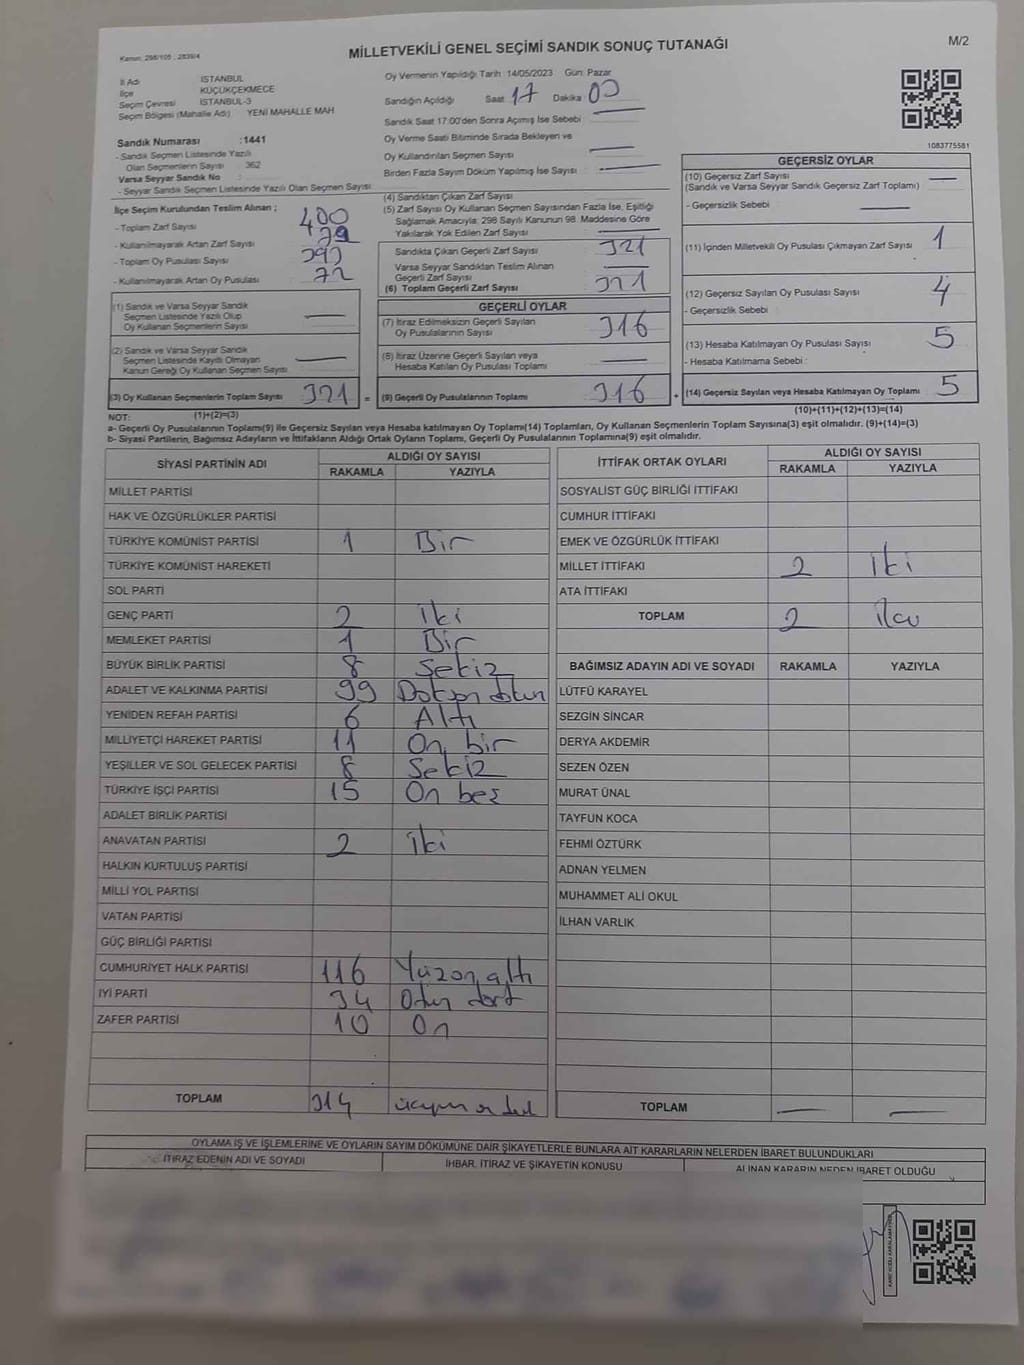 Kanun: 298/105 ; 2839/4
MİLLETVEKİLİ GENEL SEÇİMİ SANDIK SONUÇ TUTANAĞI
M/2
İl Adı İSTANBUL
İlçe KÜÇÜKÇEKMECE
Seçim Çevresi İSTANBUL-3
Seçim Bölgesi (Mahalle Adı) YENİ MAHALLE MAH
Sandık Numarası :1441
- Sandık Seçmen Listesinde Yazılı
Olan Seçmenlerin Sayısı 362
Varsa Seyyar Sandık No
- Seyyar Sandık Seçmen Listesinde Yazılı Olan Seçmen Sayısı
Oy Vermenin Yapıldığı Tarih: 14/05/2023 Gün: Pazar
Sandığın Açıldığı Saat 17 Dakika 00
Sandık Saat 17:00'den Sonra Açımış İse Sebebi :
Oy Verme Saati Bitiminde Sırada Bekleyen ve
Oy Kullandırılan Seçmen Sayısı
Birden Fazla Sayım Döküm Yapılmış İse Sayısı
1083775581
İlçe Seçim Kurulundan Teslim Alınan ;
- Toplam Zarf Sayısı 400
- Kullanılmayarak Artan Zarf Sayısı 79
- Toplam Oy Pusulası Sayısı 393
- Kullanılmayarak Artan Oy Pusulası 72
(1) Sandık ve Varsa Seyyar Sandık
Seçmen Listesinde Yazılı Olup
Oy Kullanan Seçmenlerin Sayısı
(2) Sandık ve Varsa Seyyar Sandık
Seçmen Listesinde Kayıtlı Olmayan
Kanun Gereği Oy Kullanan Seçmen Sayısı
(3) Oy Kullanan Seçmenlerin Toplam Sayısı 321 =
(4) Sandıktan Çıkan Zarf Sayısı
(5) Zarf Sayısı Oy Kullanan Seçmen Sayısından Fazla İse, Eşitliği
Sağlamak Amacıyla; 298 Sayılı Kanunun 98. Maddesine Göre
Yakılarak Yok Edilen Zarf Sayısı
Sandıkta Çıkan Geçerli Zarf Sayısı 321
Varsa Seyyar Sandıktan Teslim Alınan
Geçerli Zarf Sayısı
(6) Toplam Geçerli Zarf Sayısı 321
GEÇERLİ OYLAR
(7) İtiraz Edilmeksizin Geçerli Sayılan
Oy Pusulalarının Sayısı 316
(8) İtiraz Üzerine Geçerli Sayılan veya
Hesaba Katılan Oy Pusulası Toplamı
(9) Geçerli Oy Pusulalarının Toplamı 316 +
GEÇERSİZ OYLAR
(10) Geçersiz Zarf Sayısı
(Sandık ve Varsa Seyyar Sandık Geçersiz Zarf Toplamı)
- Geçersizlik Sebebi
(11) İçinden Milletvekili Oy Pusulası Çıkmayan Zarf Sayısı 1
(12) Geçersiz Sayılan Oy Pusulası Sayısı 4
- Geçersizlik Sebebi
(13) Hesaba Katılmayan Oy Pusulası Sayısı 5
- Hesaba Katılmama Sebebi :
(14) Geçersiz Sayılan veya Hesaba Katılmayan Oy Toplamı 5
NOT: (1)+(2)=(3) (10)+(11)+(12)+(13)=(14)
a- Geçerli Oy Pusulalarının Toplamı(9) ile Geçersiz Sayılan veya Hesaba katılmayan Oy Toplamı(14) Toplamları, Oy Kullanan Seçmenlerin Toplam Sayısına(3) eşit olmalıdır. (9)+(14)=(3)
b- Siyasi Partilerin, Bağımsız Adayların ve İttifakların Aldığı Ortak Oyların Toplamı, Geçerli Oy Pusulalarının Toplamına(9) eşit olmalıdır.
SİYASİ PARTİNİN ADI ALDIĞI OY SAYISI
RAKAMLA YAZIYLA
MİLLET PARTİSİ
HAK VE ÖZGÜRLÜKLER PARTİSİ
TÜRKİYE KOMÜNİST PARTİSİ 1 Bir
TÜRKİYE KOMÜNİST HAREKETİ
SOL PARTİ
GENÇ PARTİ 2 İki
MEMLEKET PARTİSİ 1 Bir
BÜYÜK BİRLİK PARTİSİ 8 Sekiz
ADALET VE KALKINMA PARTİSİ 99
YENİDEN REFAH PARTİSİ 6 Altı
MİLLİYETÇİ HAREKET PARTİSİ 11 On bir
YEŞİLLER VE SOL GELECEK PARTİSİ 8 Sekiz
TÜRKİYE İŞÇİ PARTİSİ 15 On beş
ADALET BİRLİK PARTİSİ
ANAVATAN PARTİSİ 2 İki
HALKIN KURTULUŞ PARTİSİ
MİLLİ YOL PARTİSİ
VATAN PARTİSİ
GÜÇ BİRLİĞİ PARTİSİ
CUMHURİYET HALK PARTİSİ 116 Yüzon altı
İYİ PARTİ 34 Otuz dört
ZAFER PARTİSİ 10 On
TOPLAM 314
İTTİFAK ORTAK OYLARI ALDIĞI OY SAYISI
RAKAMLA YAZIYLA
SOSYALİST GÜÇ BİRLİĞİ İTTİFAKI
CUMHUR İTTİFAKI
EMEK VE ÖZGÜRLÜK İTTİFAKI
MİLLET İTTİFAKI 2 İki
ATA İTTİFAKI
TOPLAM 2
BAĞIMSIZ ADAYIN ADI VE SOYADI RAKAMLA YAZIYLA
LÜTFÜ KARAYEL
SEZGİN SİNCAR
DERYA AKDEMİR
SEZEN ÖZEN
MURAT ÜNAL
TAYFUN KOCA
FEHMİ ÖZTÜRK
ADNAN YELMEN
MUHAMMET ALİ OKUL
İLHAN VARLIK
TOPLAM
OYLAMA İŞ VE İŞLEMLERİNE VE OYLARIN SAYIM DÖKÜMÜNE DAİR ŞİKAYETLERLE BUNLARA AİT KARARLARIN NELERDEN İBARET BULUNDUKLARI
İTİRAZ EDENİN ADI VE SOYADI İHBAR, İTİRAZ VE ŞİKAYETİN KONUSU ALINAN KARARIN NEDEN İBARET OLDUĞU